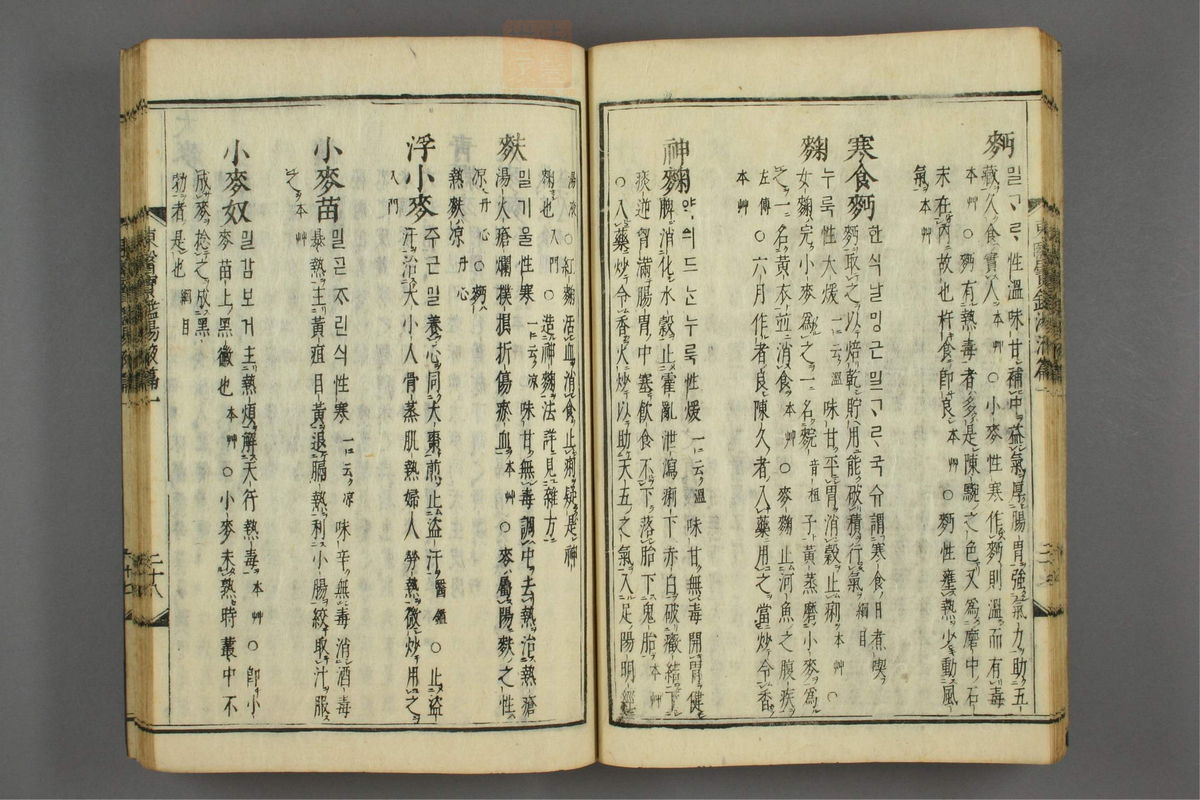 麪 밀ᄀᆞᄅᆞ 性溫味甘補中益氣厚腸胃強氣力助五
藏久食實人 本艸 ○小麥性寒作麪則溫而有毒
本艸 ○麪有熱毒者多是陳黦之色又爲磨中石
末在內故也杵食即良 本艸 ○麪性壅熱少動風
氣 本艸
寒食麪 한식날밍근밀ᄀᆞᄅᆞ국今謂寒食日煮喫
麪取之以焙乾貯用能破積行氣 綱目
麴 누룩性大煖 一云溫 味甘平胃消穀止痢 本艸 ○
女麴完小麥爲之一名䴷 音桓 子黃蒸磨小麥爲
之一名黃衣並消食 本艸 ○麥麴止河魚之腹疾
左傳 ○六月作者良陳久者入藥用之當炒令香
本艸
神麴 약의드ᄂᆞᆫ누룩性煖 一云溫 味甘無毒開胃健
脾消化水穀止霍亂泄瀉痢下赤白破癥結下
痰逆胷滿腸胃中塞飮食不下落胎下鬼胎 本艸
○入藥炒令香火炒以助天五之氣入足陽明經
湯液 ○紅麴活血消食止痢疑是神
麴也 入門 ○造神麴法詳見雜方
麩 밀기울性寒 一云凉 味甘無毒調中去熱治熱瘡
湯火瘡爛撲損折傷瘀血 本艸 ○麥屬陽麩之性
凉 丹心 ○麪熱麩凉 丹心
浮小麥 주근밀養心同大棗煎止盜汗 醫鑑 ○止盜
汗治大小人骨蒸肌熱婦人勞熱微炒用之
入門
小麥苗 밀곧ᄌᆞ린싀性寒 一云凉 味辛無毒消酒毒
暴熱主黃疸目黃退膈熱利小腸絞取汁服
之 本艸
小麥奴 밀감보기主熱煩解天行熱毒 本艸 ○即小
麥苗上黑黴也 本艸 ○小麥未熟時叢中不
成麥捻之成黑
勃者是也 綱目
東醫寶鑑湯液篇一
二十八